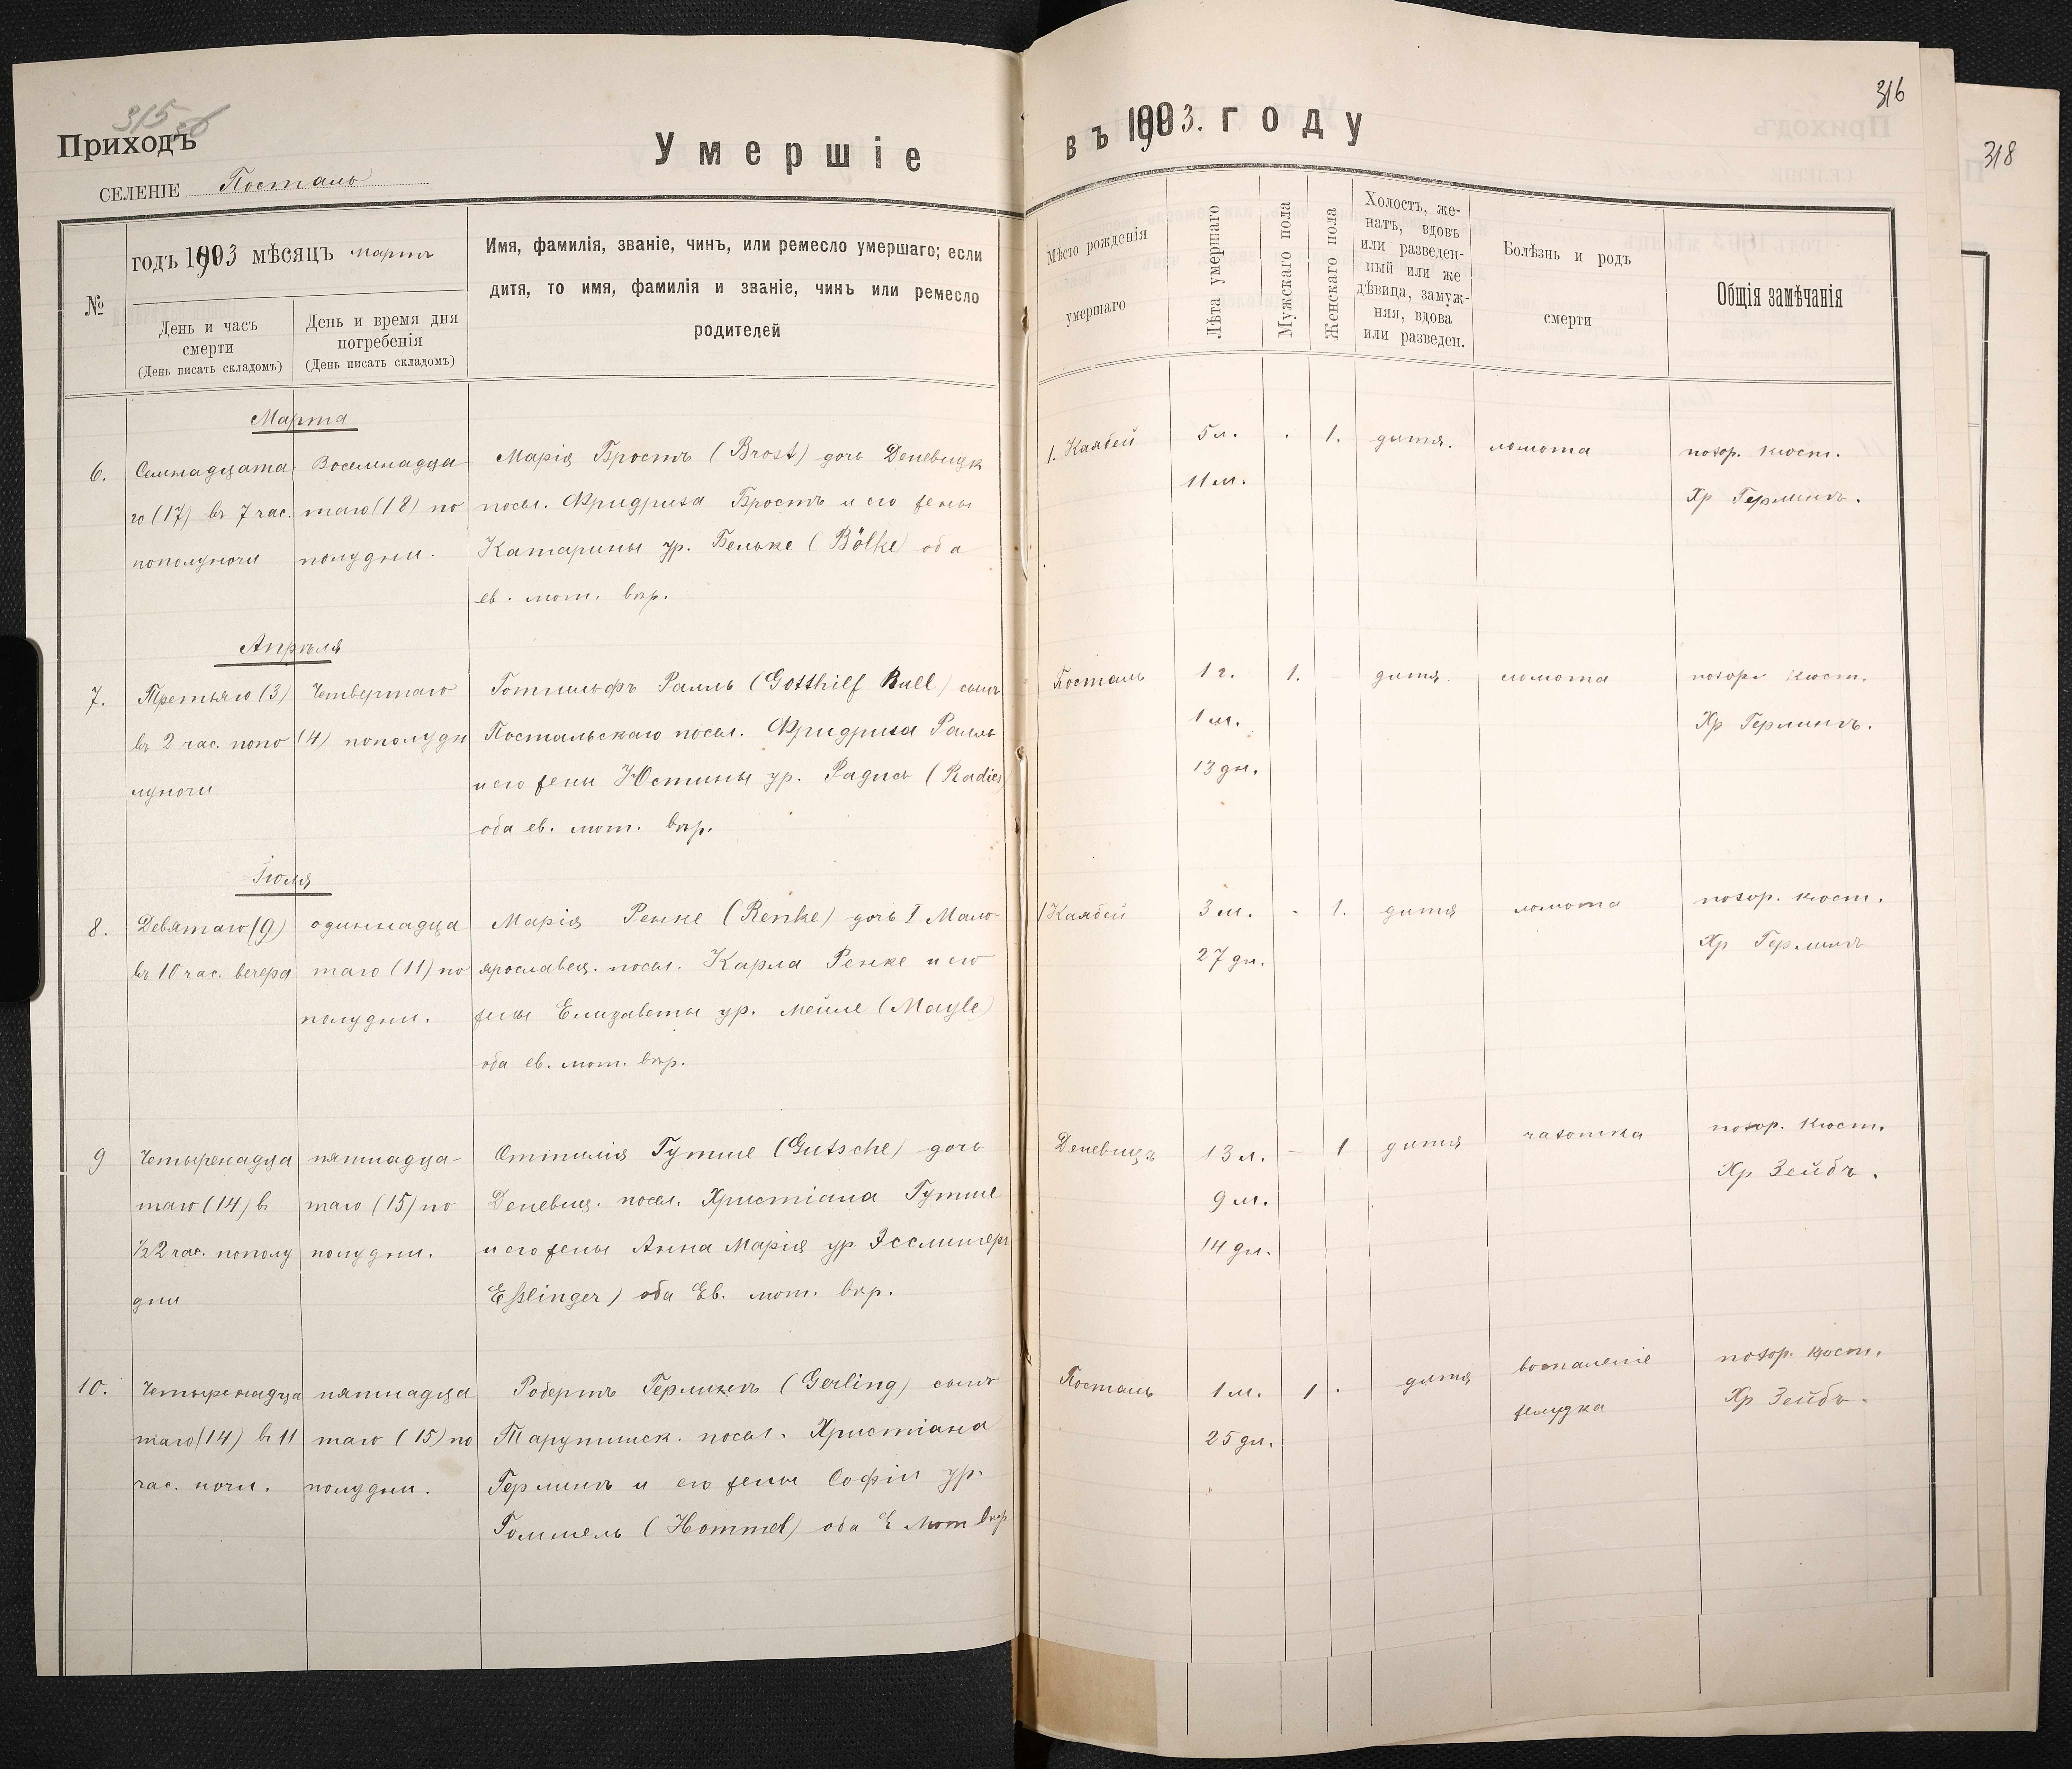 315 об
Приходъ
СЕЛЕНІЕ Посталь
Умершіе
№
годъ 1903 мѣсяцъ Мартъ
День и часъ
смерти
(День писать складомъ)
День и время дня
погребенія
(День писать складомъ)
Имя, фамилія, званіе, чинъ, или ремесло умершаго; если
дитя, то имя, фамилія и званіе, чинъ или ремесло
родителей
Марта
6. Семнадцата Восемнадца Марія Бростъ (Brost) дочь Деневицк
го (17) въ 7 час. таго (18) по посел. Фридриха Бростъ и его жены
пополуночи полудни. Катарины ур. Бельке (Bölke) оба
ев. лют. вѣр.
Апрѣля
7. Третьяго (3) Четвертаго Готгильфъ Ралль (Gotthilf Rall) сынъ
въ 2 час. попо (4) пополудн Постальскаго посел. Фридриха Ралль
луночи и его жены Юстины ур. Радисъ (Radies)
оба ев. лют. вѣр.
Іюля
8. Девятаго (9) одиннадца Марія Ренке (Renke) дочь I Мало
въ 10 час. вечера таго (11) по ярославец. посел. Карла Ренке и его
полудни. жены Елизаветы ур. Мейле (Mayle)
оба ев. лют. вѣр.
9 Четыренадца пятнадца- Отилія Гутше (Gutsche) дочь
таго (14) въ таго (15) по Деневиц. посел. Христіана Гутше
½2 час. пополу полудни. и его жены Анна Марія ур. Эсслингеръ
дни Eßlinger) оба Ев. лют. вѣр.
10. Четыренадца пятнадца Робертъ Герлингъ (Gerling) сынъ
таго (14) въ 11 таго (15) по Тарутинск. посел. Христіана
час. ночи. полудни. Герлингъ и его жены Софіи ур.
Гоммель (Hommel) оба Е Лют вѣр
316
въ 1903. году
Мѣсто рожденія
умершаго
Лѣта умершаго
Мужскаго пола
Женскаго пола
Холостъ, же-
натъ, вдовъ
или разведен-
ный или же
дѣвица, замуж-
няя, вдова
или разведен.
Болѣзнь и родъ
смерти
Общія замѣчанія
1. Каябей 5 л. . 1. дитя. ломота похор. кюст.
11 м. Хр Герлингъ.
Посталь 1 г. 1. дитя. ломота похор. кюст.
1 м. Хр Герлингъ.
13 дн.
1 Каябей 3 м. - 1. дитя ломота похор. кюст.
27 дн. Хр Герлингъ
Деневицъ 13 л. - 1 дитя чахотка похор. кюст.
9 м. Хр Зейбъ.
14 дн.
Посталь 1 м. 1 . дитя воспаленіе похор. кюст.
25 дн. желудка Хр Зейбъ.
318